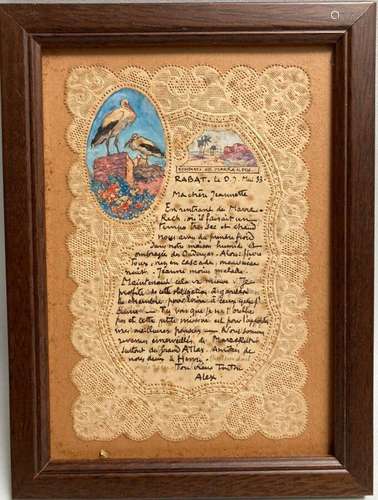 SOUVENIR DE MARRAKECH
RABAT. Le D. 7 Mai 33
Ma chère Jeannette
En rentrant de Marra-
Kech, où il faisait un
temps très sec et chaud
nous avons du prendre froid
dans notre maison humide et
ombragée des Oudayas. Alors fièvre
Toux, en cascade, mauvaises
nuits. Jeanne moins malade.
Maintenant cela va mieux. Je
profite de cette obligation de garder
la chambre pour
Tu vois que je ne t'oublie
pas et cette petite missive est pour t'apporter
mes meilleures pensées — Nous sommes
revenus émerveillés de Marrakech
surtout du grand Atlas. Amitiés de
nous deux à Henri
Ton vieux Tonton
Alex